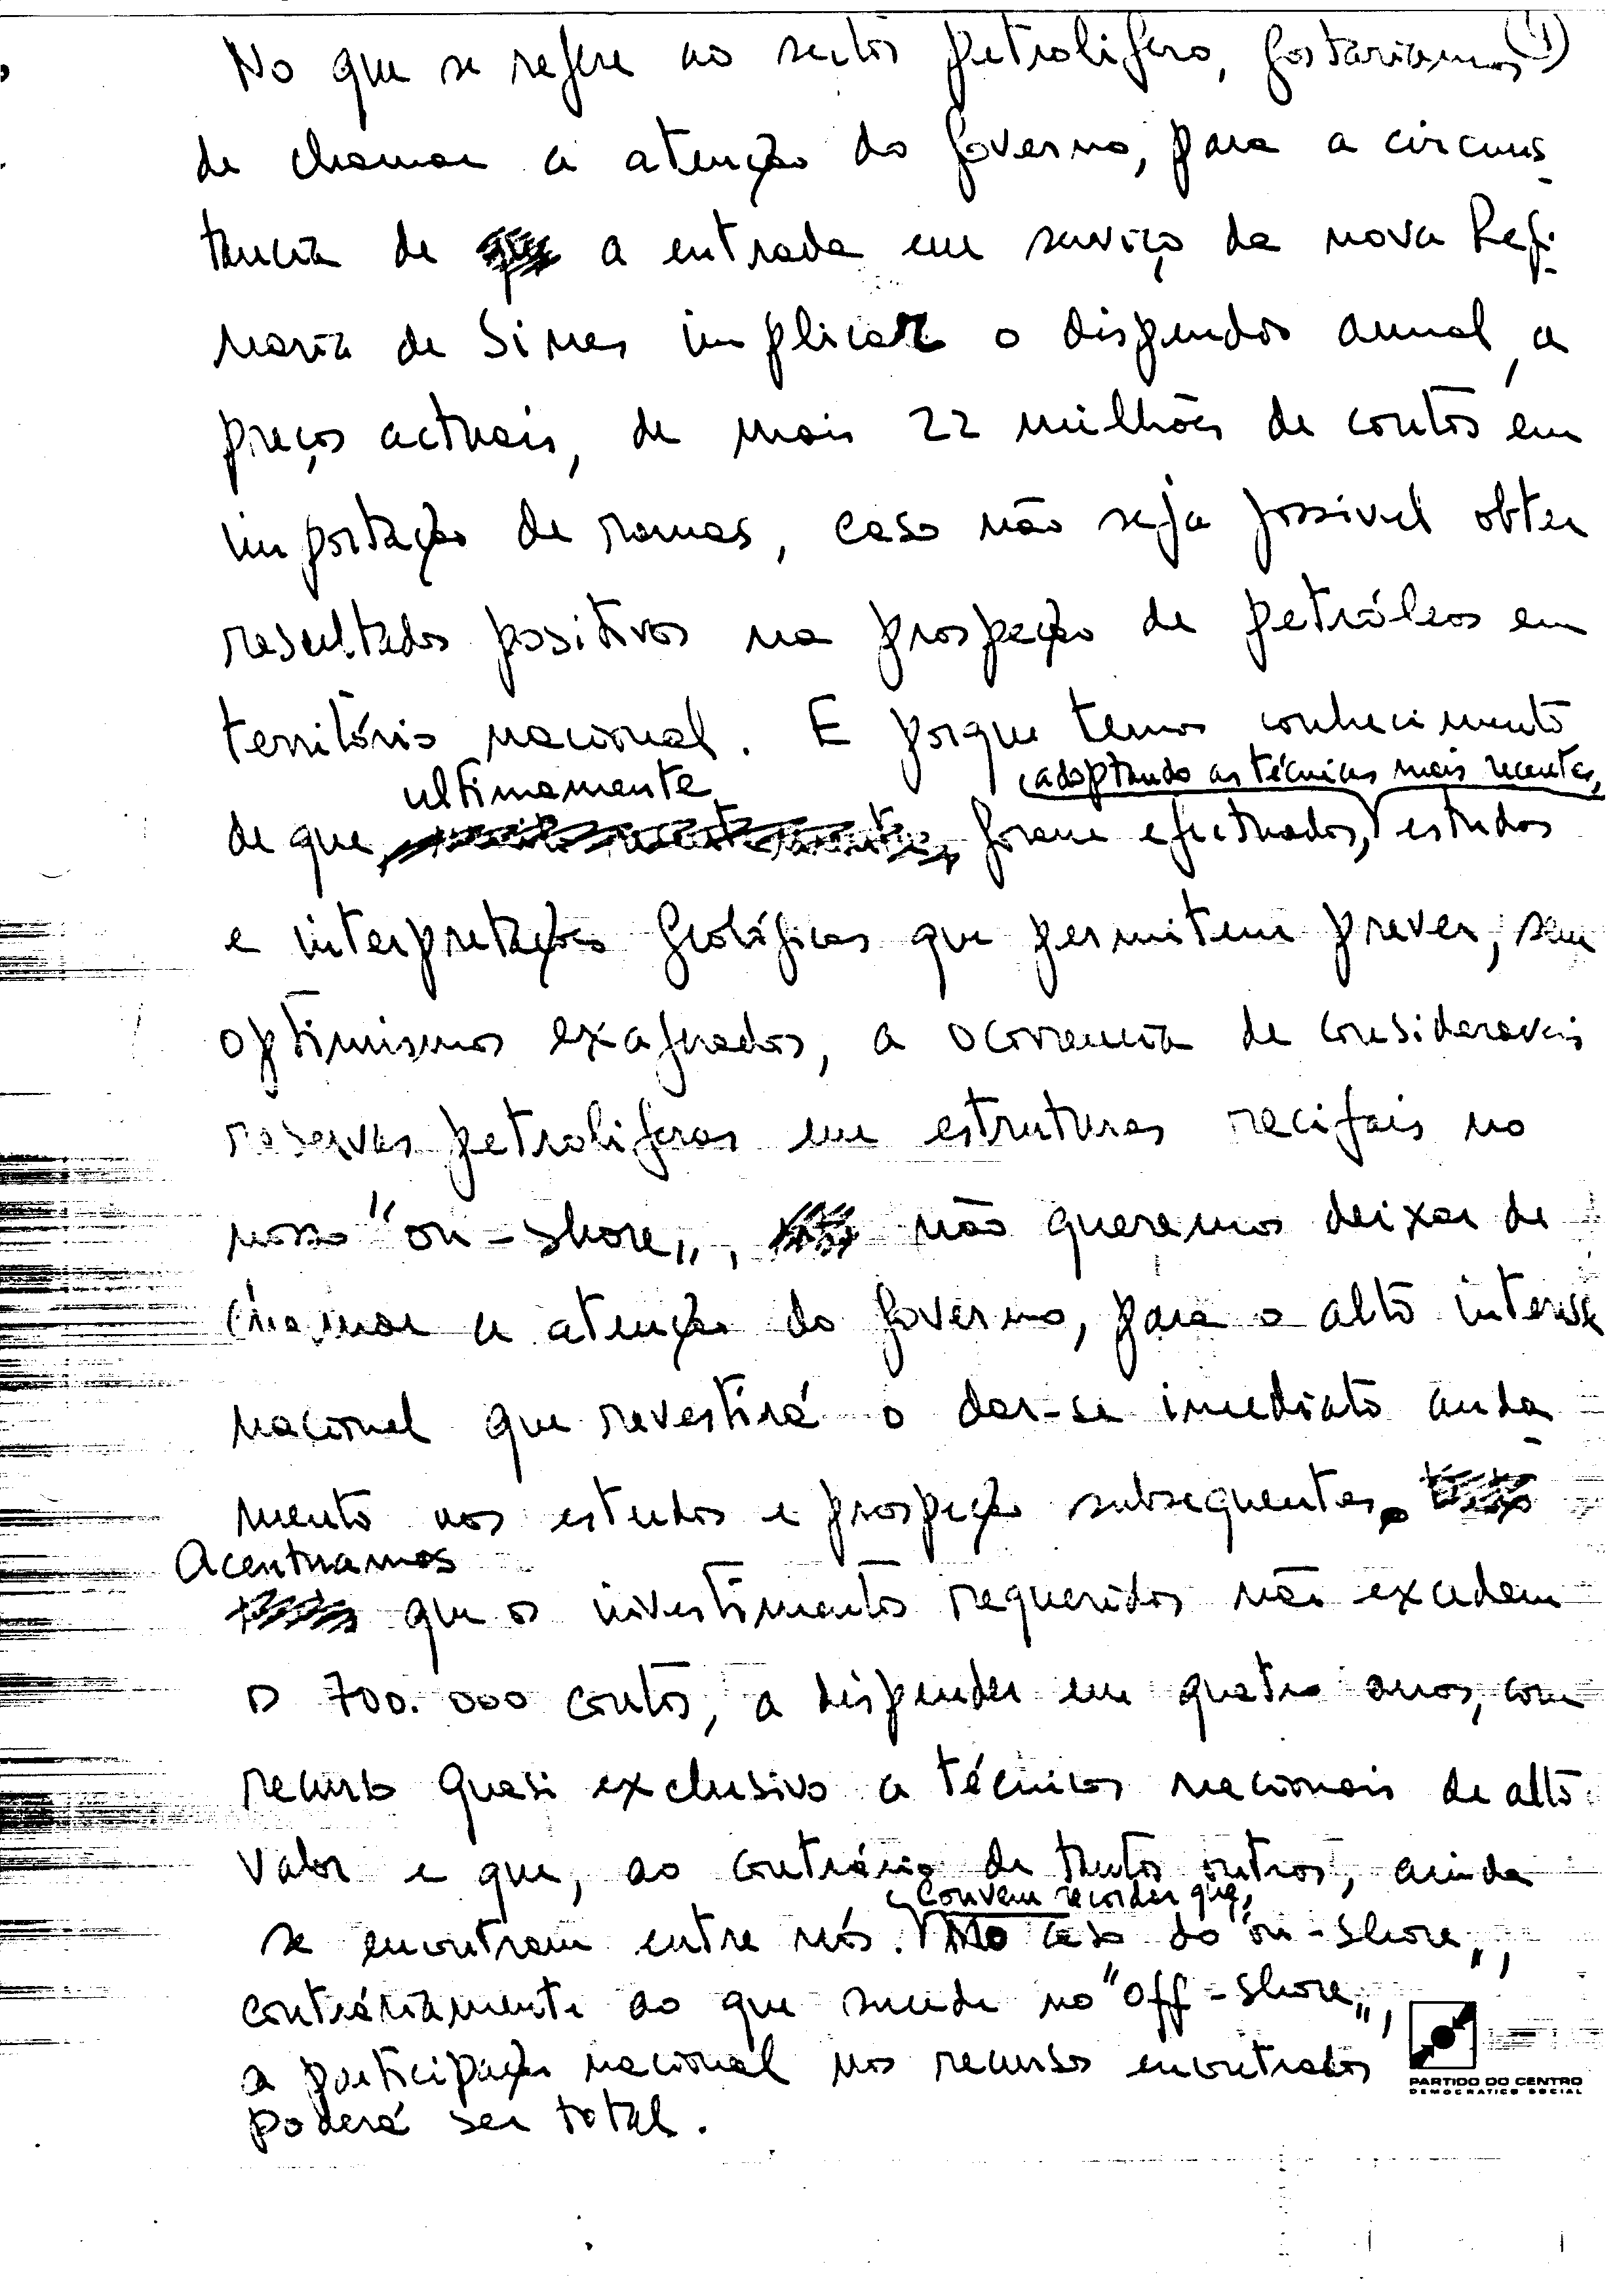 No que se refere ao sector petrolífero, gostaríamos (1)
de chamar a atenção do Governo, para a circuns-
tância de a entrada em serviço da nova Refi-
naria de Sines implicar o dispendio anual, a
preços actuais, de mais 22 milhões de contos em
importação de ramas, caso não seja possivel obter
resultados positivos na prospeção de petróleos em
território nacional. E porque temos conhecimento
adoptando as técnicas mais recentes,
ultimamente
de que foram efectuados, estudos
e interpretações geológicas que permitem prever, sem
optimismos exagerados, a ocorrencia de consideraveis
reservas petroliferas em estruturas recifais no
nosso "on-shore", não queremos deixar de
chamar a atenção do Governo, para o alto interesse
nacional que revestirá o dar-se imediato anda-
mento aos estudos e prospeção subsequentes.
Acentuamos
que os investimentos requeridos não excedem
os 700.000 contos, a dispender em quatro anos, com
recurso quasi exclusivo a técnicos nacionais de alto
valor e que, ao contrário de tantos outros, ainda
Convem recordar que,
se encontram entre nós. no caso do "on-shore",
contráriamente ao que sucede no "off-shore",
a participação nacional nos recursos encontrados
poderá ser total.
PARTIDO DO CENTRO
DEMOCRATICO SOCIAL